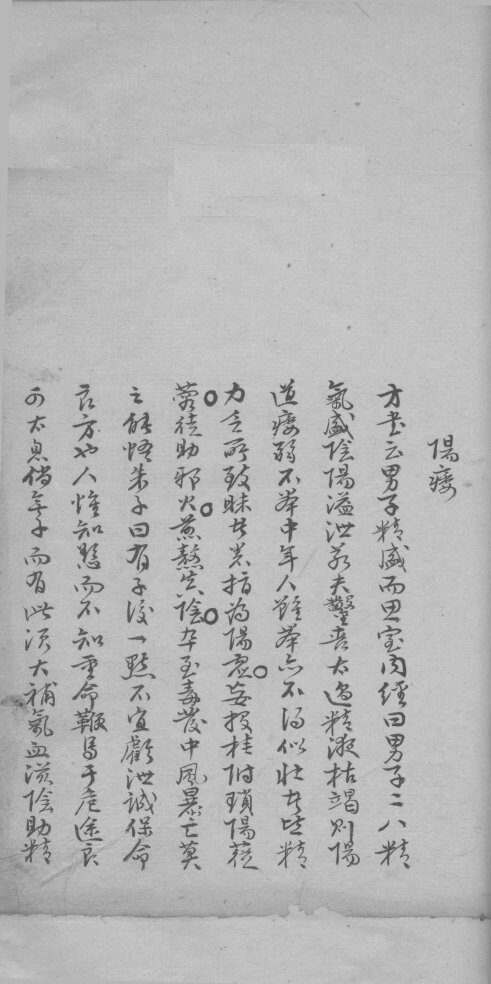 陽痿
方書云男子精盛而思室內經曰男子二八精
氣盛陰陽溢泄若夫斵喪太過精液枯竭則陽
道痿弱不舉中年人雖舉亦不得似壯者皆精
力乏所致昧者指為陽虛妄投桂附瑣陽蓯
蓉徒助邪火煎熬真陰卒至毒發中風暴亡莫
之能悟朱子曰有子後一點不宜虧泄誠保命
良方也人惟知慾而不知重命鞭馬于危途良
可太息倘無子而有此須大補氣血滋陰助精